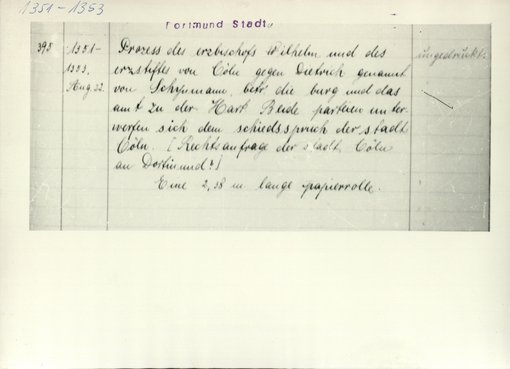 1351-1353
Dortmund Stadt
395 1351- Prozess des erzbischofs Wilhelm und des ungedruckt.
1353, erzstiftes von Cöln gegen Dietrich genannt
Aug 22. von betr. die burg und das
amt zu der Hart. Beide parteien unter-
werfen sich dem schiedsspruch der stadt
Cöln. [Rechtsanfrage der stadt Cöln
an Dortmund?]
Eine 2,38 m lange papierrolle.